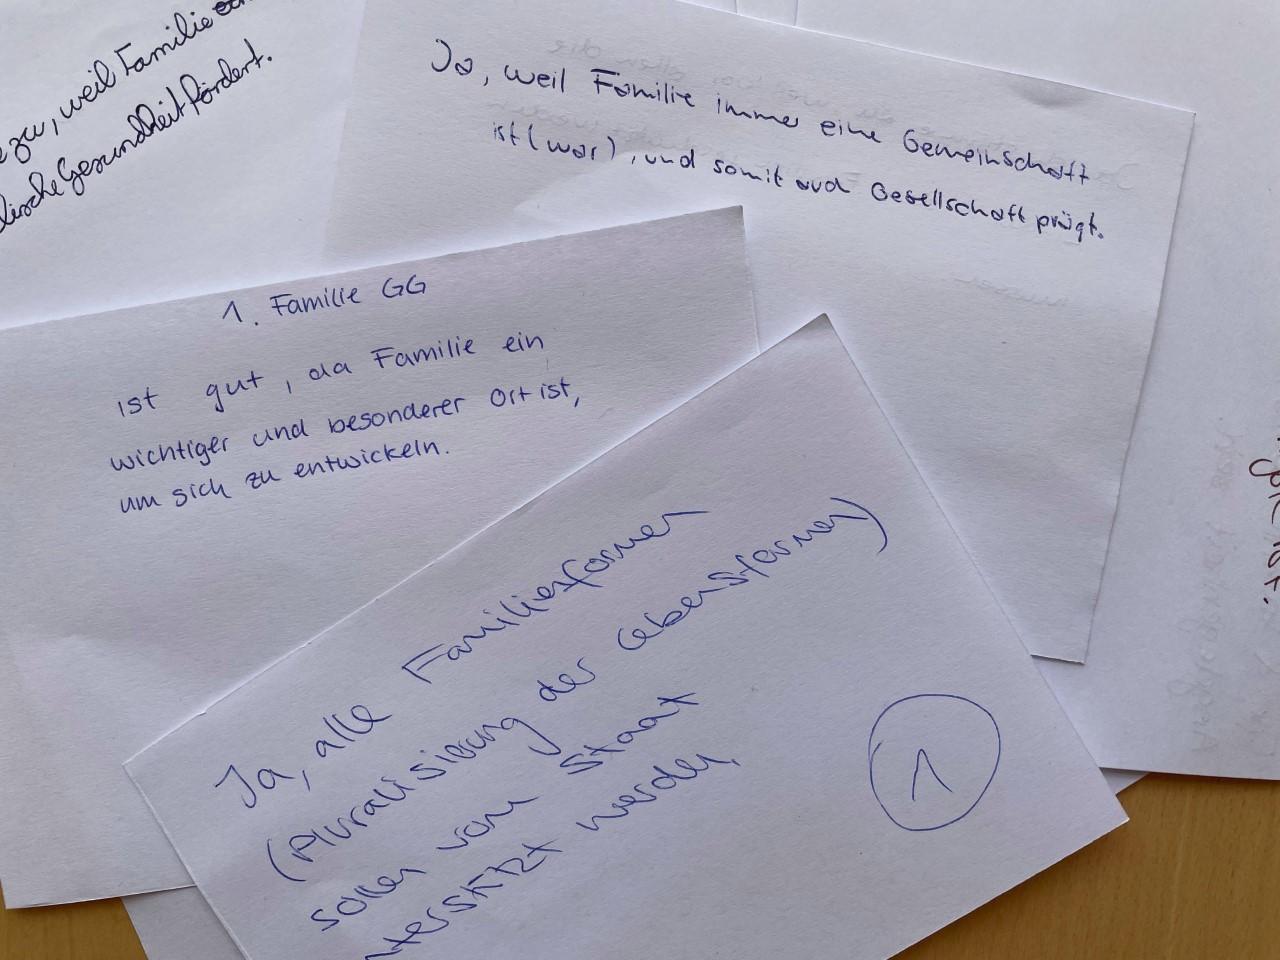 zu, weil Familie
Gesundheit fördert.
Ja, weil Familie immer eine Gemeinschaft
ist (war), und somit auch Gesellschaft prägt.
1. Familie GG
ist gut, da Familie ein
wichtiger und besonderer Ort ist,
um sich zu entwickeln.
Ja, alle Familienformen
(Pluralisierung der Lebensformen)
sollen vom Staat
unterstützt werden.
1